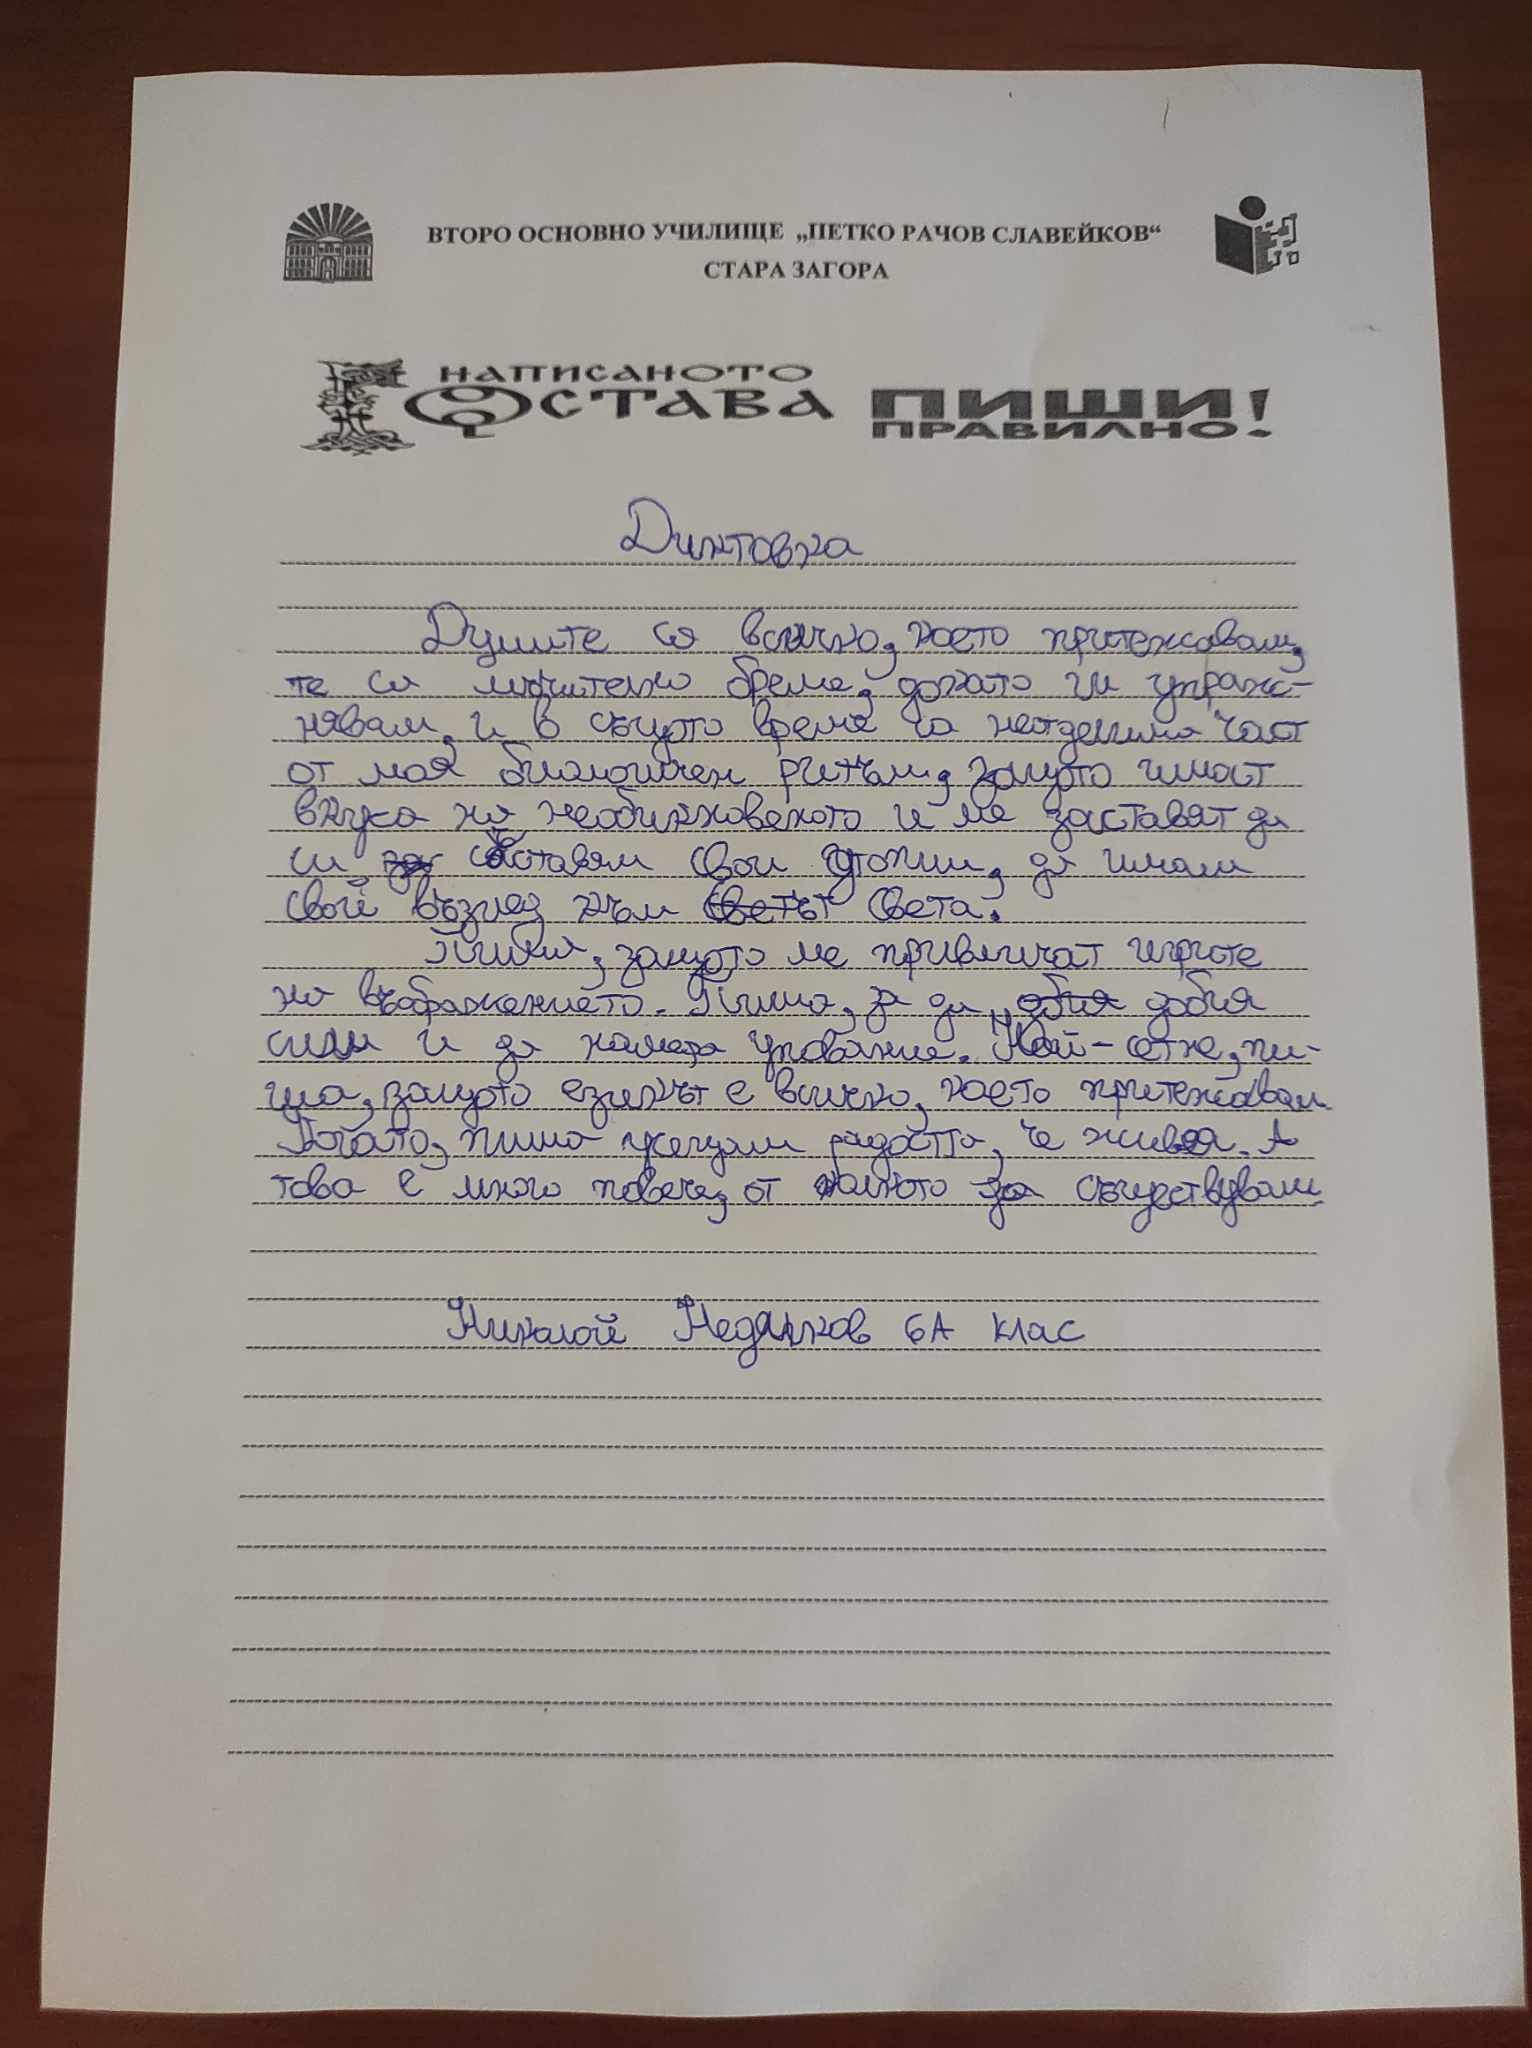 ВТОРО ОСНОВНО УЧИЛИЩЕ „ПЕТКО РАЧОВ СЛАВЕЙКОВ“
СТАРА ЗАГОРА
НАПИСАНОТО
ОСТАВА ПИШИ
ПРАВИЛНО!
Диктовка
Думите са всичко, което притежавам,
те са мъчително бреме, докато ги упраж-
нявам, и в същото време са неотделима част
от моя биологичен ритъм, защото имат
вкуса на необикновеното и ме заставят да
си съставям свои утопии, да имам
свой възглед към света.
Пиша, защото ме привличат игрите
на въображението. Пиша, за да добия
сили и да намеря упование. Най-сетне, пи-
ша, защото езикът е всичко, което притежавам.
Когато, пиша усещам радостта, че живея. А
това е много повече, от колкото съществувам.
Николай Недялков 6А клас